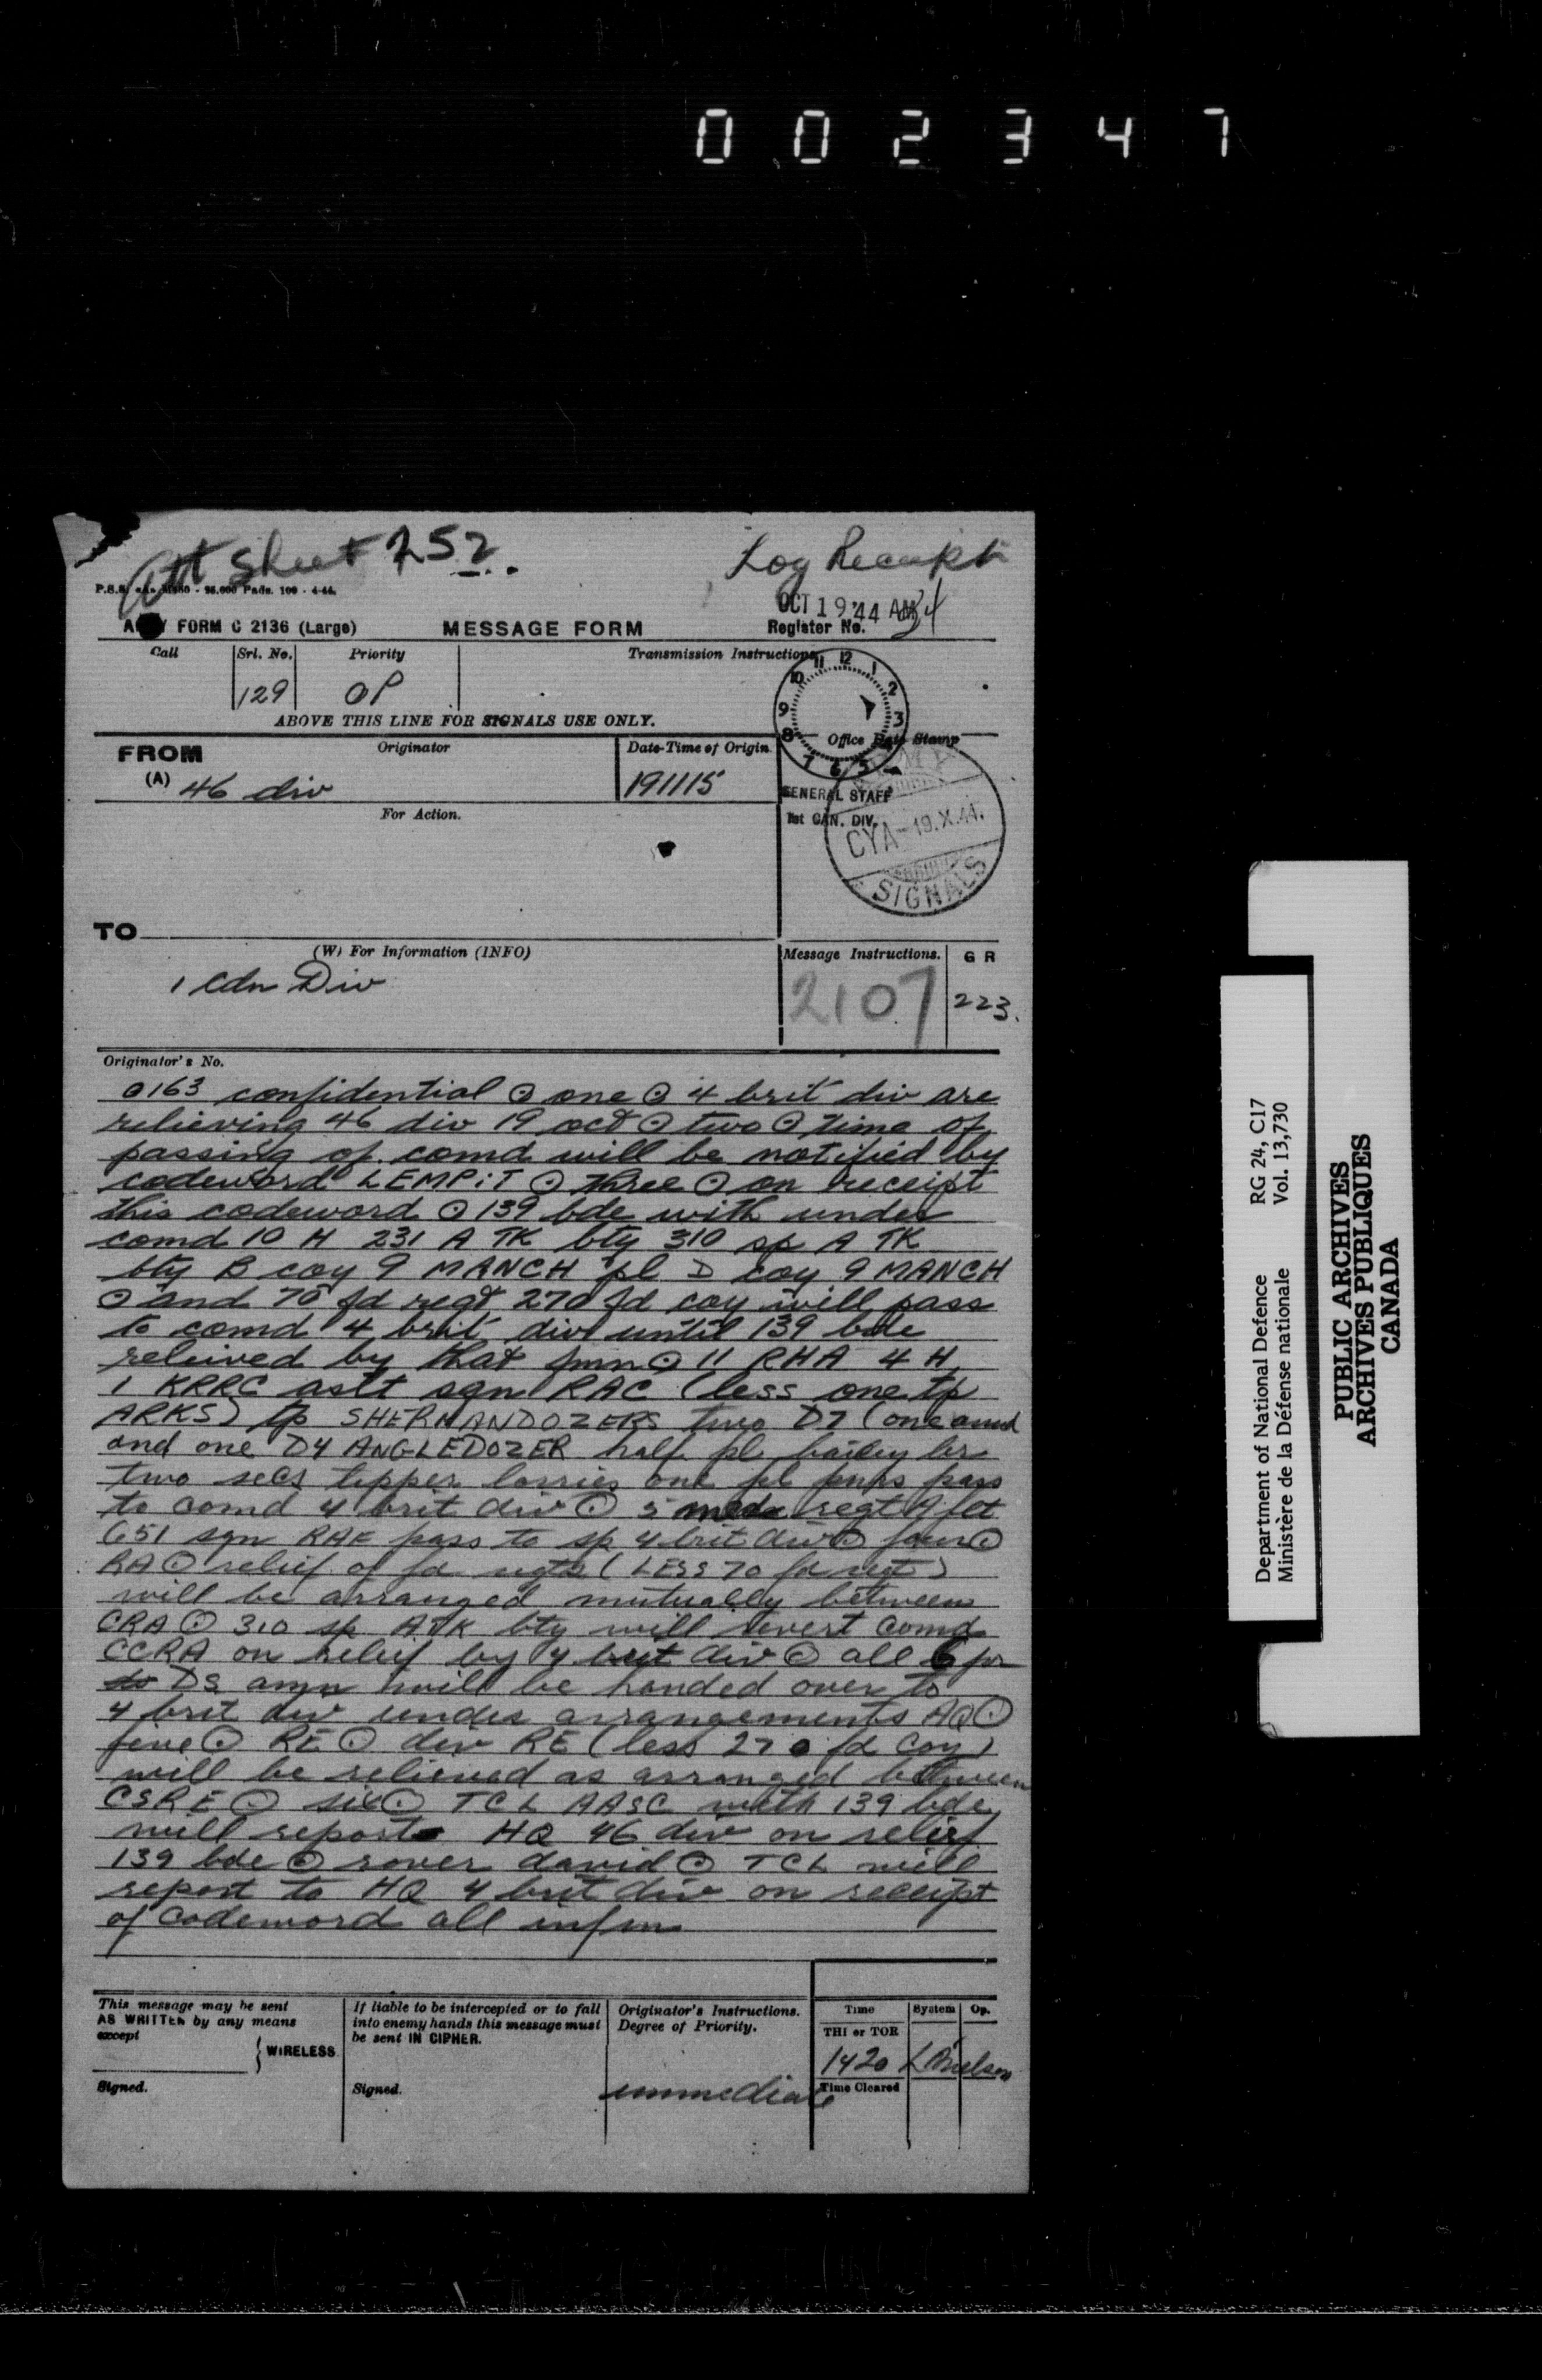 002347
Att Sheet 252.
Log Receipt
OCT 19 44 AM
FORM C 2136 (Large)
MESSAGE FORM
Register No. 34
Call
Srl. No.
Priority
Transmission Instructions
129
OP
ABOVE THIS LINE FOR SIGNALS USE ONLY.
12 1 2 3 5 6 7 8 9 10 11
FROM
Originator
Date-Time of Origin
Office Date Stamp
(A) 46 div
191115
GENERAL STAFF
1st CAN. DIV.
For Action.
CYA-19.X.44.
SIGNALS
TO
(W) For Information (INFO)
Message Instructions.
G R
1 Cdn Div
2107
223.
Originator's No.
0163 confidential ⊙ one ⊙ 4 brit div are
relieving 46 div 19 oct ⊙ two ⊙ time of
passing of comd will be notified by
codeword LEMPiT ⊙ three ⊙ on receipt
this codeword ⊙ 139 bde with under
comd 10 H 231 A TK bty 310 sp A TK
bty B coy 9 MANCH pl D coy 9 MANCH
⊙ and 70 fd regt 270 fd coy will pass
to comd 4 brit div until 139 bde
releived by that fmn ⊙ 11 RHA 4 H
1 KRRC aslt sqn RAC (less one tp
ARKS) tp SHERMANDOZERS two D7 (one amd
and one D4 ANGLEDOZER half pl bailey br
two secs tipper lorries one pl pnrs pass
to comd 4 brit div ⊙ 5 med regt A flt
651 sqn RAF pass to sp 4 brit div ⊙ four ⊙
RA ⊙ relief of fd regts (LESS 70 fd regt)
will be arranged mutually between
CRA ⊙ 310 sp ATK bty will revert comd
CCRA on relief by 4 brit div ⊙ all 6 pr
DS amn will be handed over to
4 brit div under arrangements AQ ⊙
five ⊙ RE ⊙ div RE (less 270 fd coy)
will be relieved as arranged between
CSRE ⊙ six ⊙ TCL AASC with 139 bde
will report HQ 46 div on relief
139 bde ⊙ rover david ⊙ TCL will
report to HQ 4 brit div on receipt
of codeword all infm
This message may be sent
AS WRITTEN by any means
except
WIRELESS
Signed.
If liable to be intercepted or to fall
into enemy hands this message must
be sent IN CIPHER.
Signed.
Originator's Instructions.
Degree of Priority.
immediate
Time
System
Op.
THI or TOR
1420
Time Cleared
Department of National Defence
Ministère de la Défense nationale
RG 24, C17
Vol. 13,730
PUBLIC ARCHIVES
ARCHIVES PUBLIQUES
CANADA